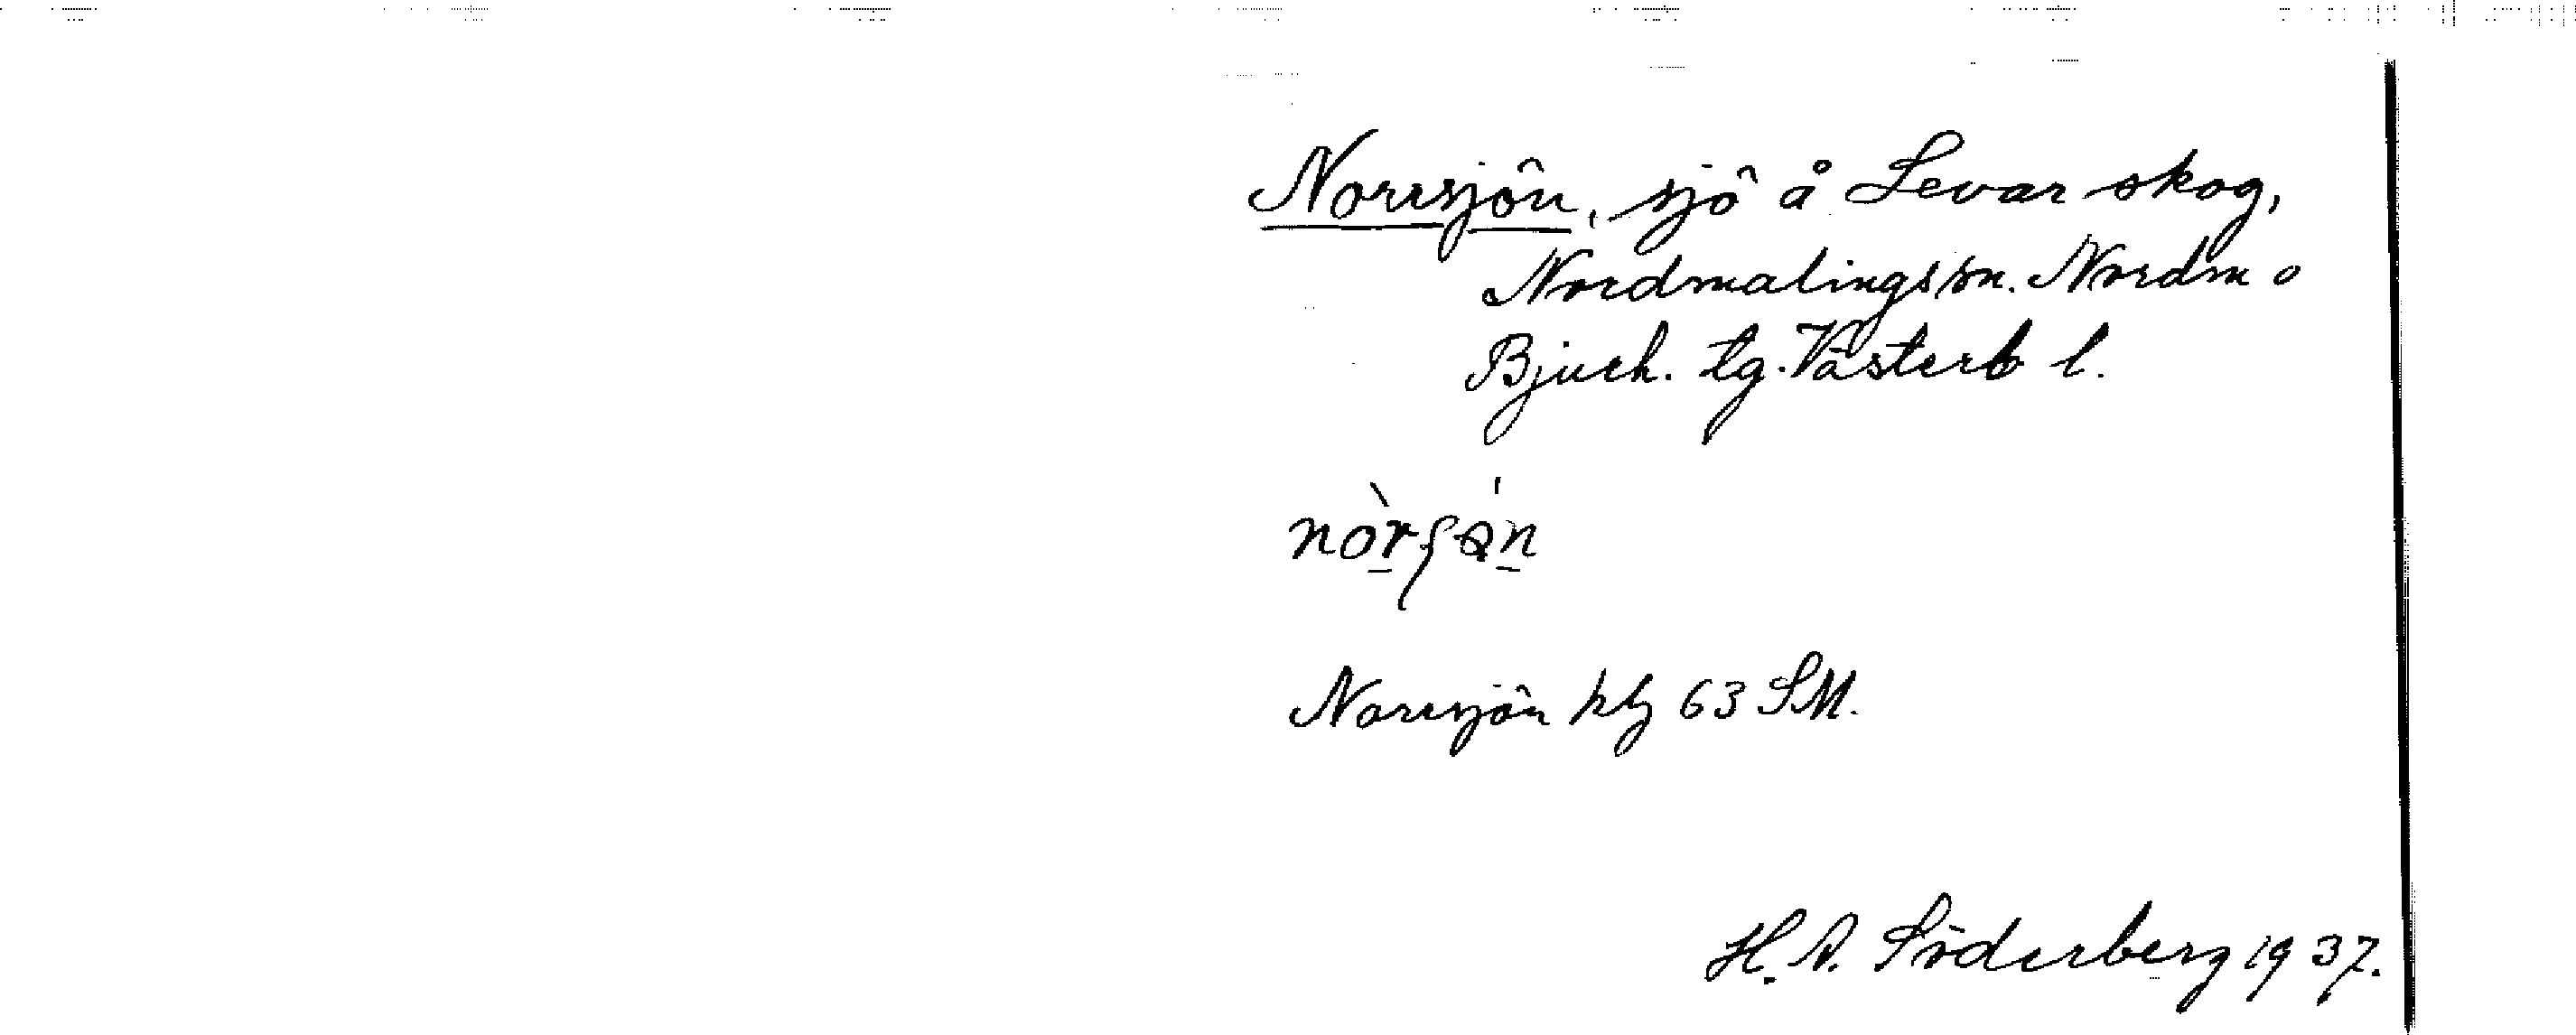 Norrsjön, sjö å Levar skog,
Nordmalings sn. Nordm o
Bjurh. tg. Västerb l.
Norrsjön kbl 63 SM.
H. A. Söderberg 1937.